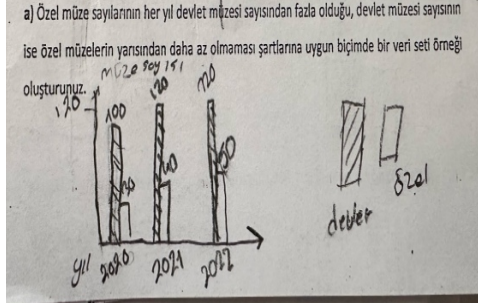 a) Özel müze sayılarının her yıl devlet müzesi sayısından fazla olduğu, devlet müzesi sayısının
ise özel müzelerin yarısından daha az olmaması şartlarına uygun biçimde bir veri seti örneği
oluşturunuz.
müze sayısı
120
100
120
120
özel
devlet
yıl 2020 2021 2022